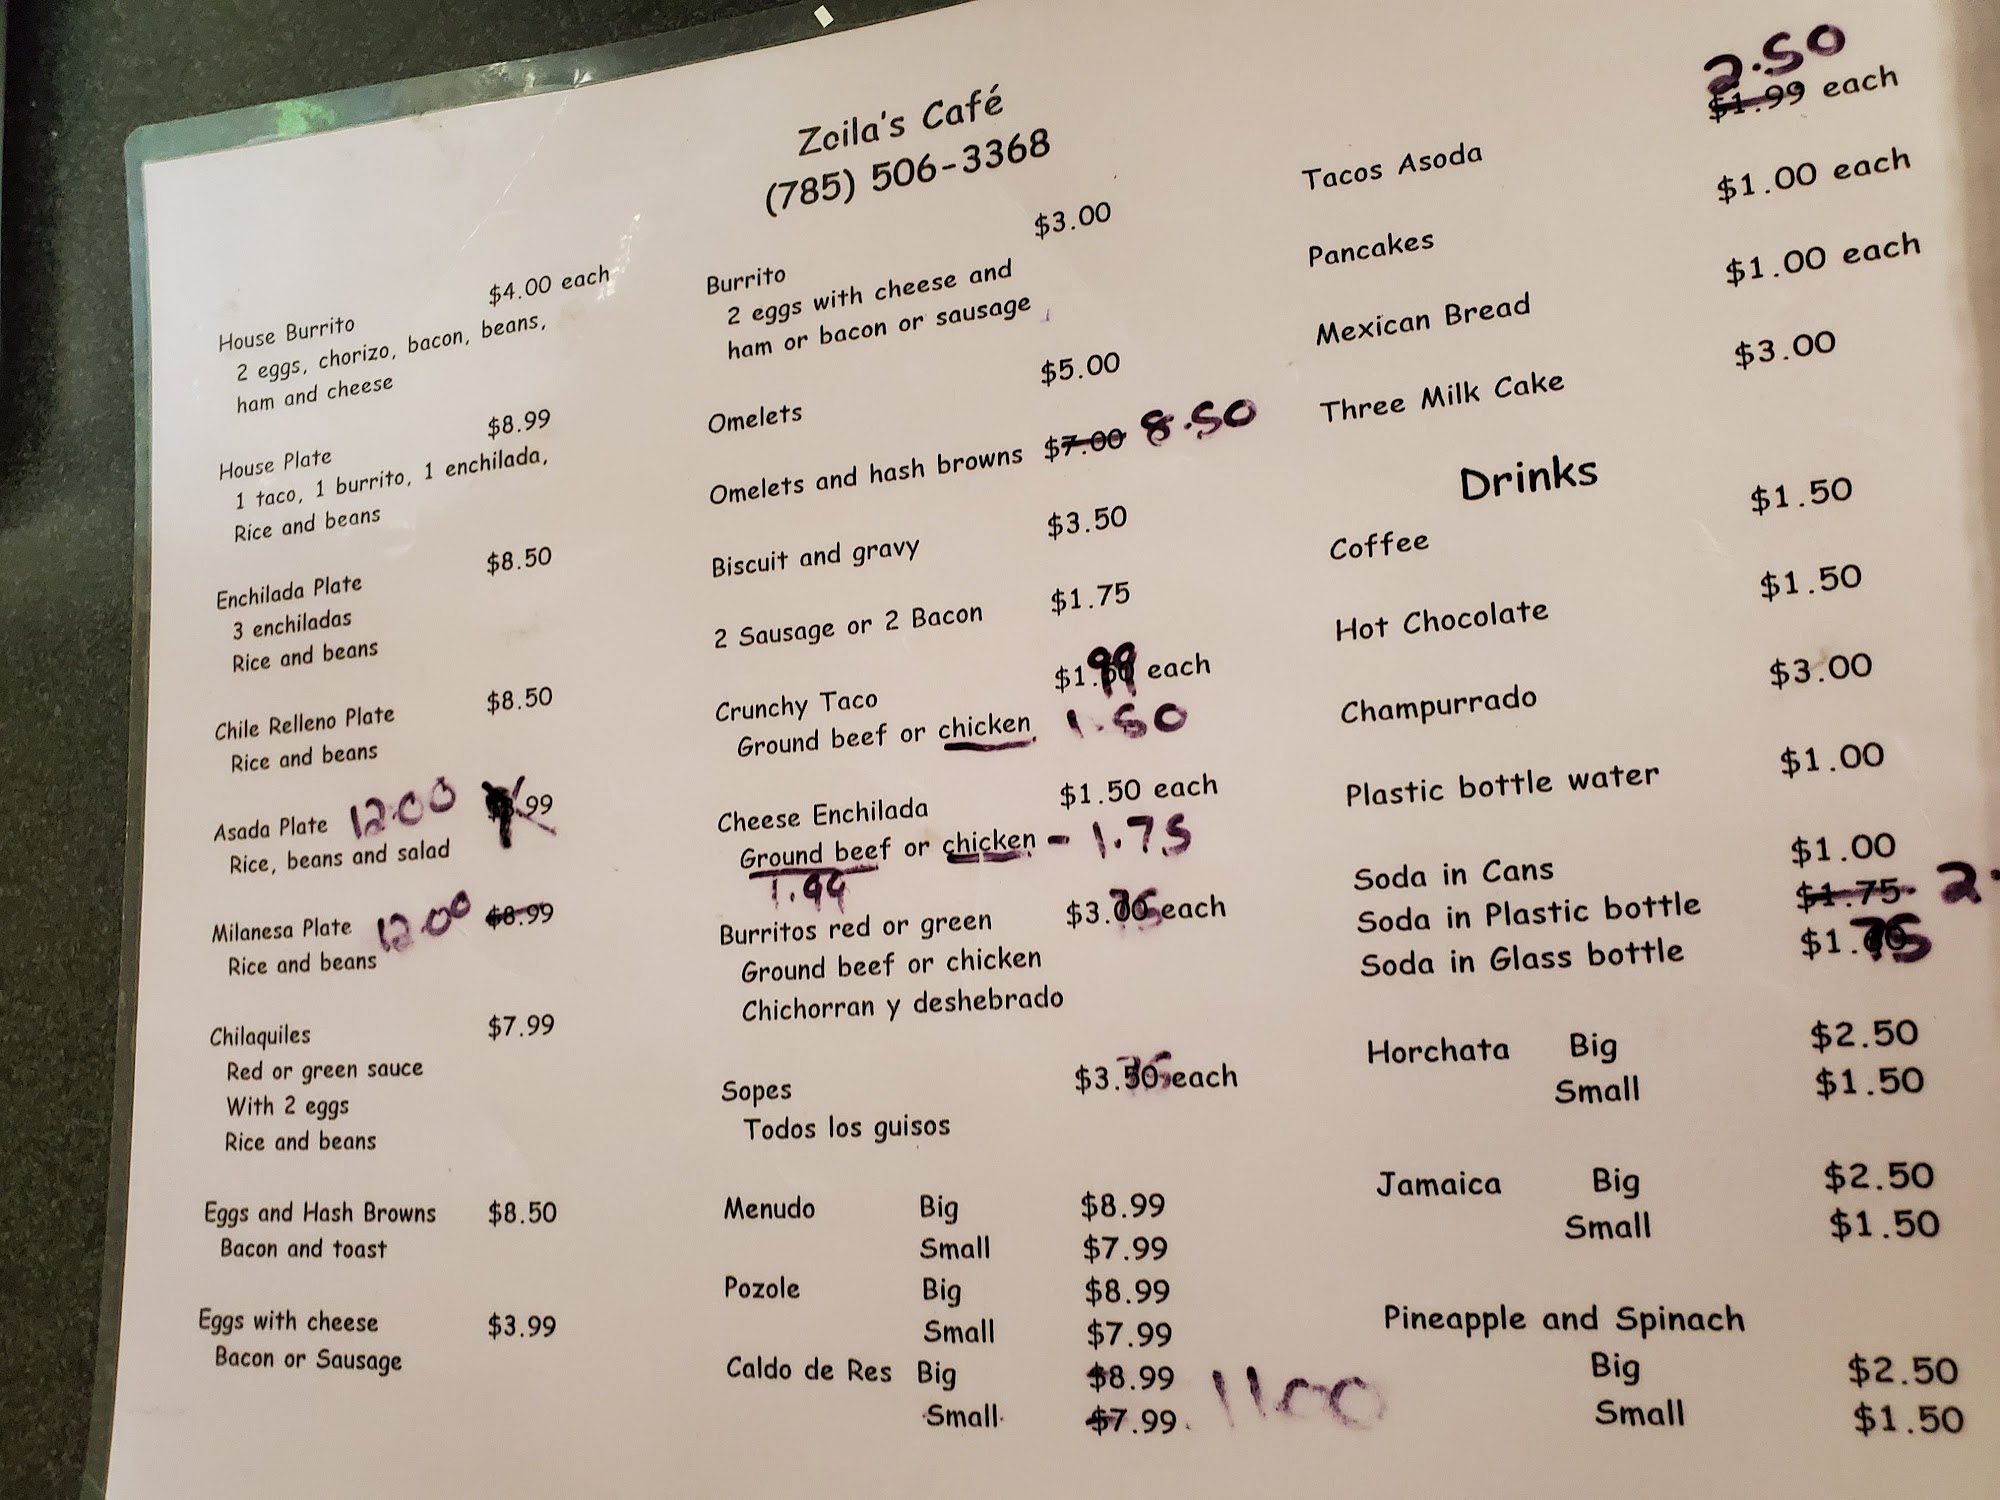 Zoila's Café
(785) 506-3368
House Burrito $4.00 each
2 eggs, chorizo, bacon, beans,
ham and cheese
House Plate $8.99
1 taco, 1 burrito, 1 enchilada,
Rice and beans
Enchilada Plate $8.50
3 enchiladas
Rice and beans
Chile Relleno Plate $8.50
Rice and beans
Asada Plate 12.00 .99
Rice, beans and salad
Milanesa Plate 12.00 $8.99
Rice and beans
Chilaquiles $7.99
Red or green sauce
With 2 eggs
Rice and beans
Eggs and Hash Browns $8.50
Bacon and toast
Eggs with cheese $3.99
Bacon or Sausage
Burrito $3.00
2 eggs with cheese and
ham or bacon or sausage
Omelets $5.00
Omelets and hash browns $7.00 8.50
Biscuit and gravy $3.50
2 Sausage or 2 Bacon $1.75
Crunchy Taco $1.99 each
Ground beef or chicken 1.50
Cheese Enchilada $1.50 each
Ground beef or chicken - 1.75
1.99
Burritos red or green $3.75 each
Ground beef or chicken
Chichorran y deshebrado
Sopes $3.75 each
Todos los guisos
Menudo Big $8.99
Small $7.99
Pozole Big $8.99
Small $7.99
Caldo de Res Big $8.99
Small $7.99 11.00
2.50
Tacos Asoda $1.99 each
Pancakes $1.00 each
Mexican Bread $1.00 each
Three Milk Cake $3.00
Drinks
Coffee $1.50
Hot Chocolate $1.50
Champurrado $3.00
Plastic bottle water $1.00
Soda in Cans $1.00
Soda in Plastic bottle $1.75 2.
Soda in Glass bottle $1.75
Horchata Big $2.50
Small $1.50
Jamaica Big $2.50
Small $1.50
Pineapple and Spinach
Big $2.50
Small $1.50